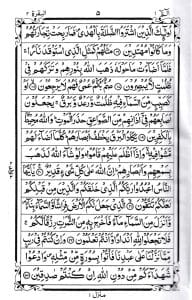 الٓمّٓ ١ ٥ البقرة ٢
اُولٰٓئِكَ الَّذِيْنَ اشْتَرَوُا الضَّلٰلَةَ بِالْهُدٰى فَمَا رَبِحَتْ تِّجَارَتُهُمْ
وَمَا كَانُوْا مُهْتَدِيْنَ ۝ مَثَلُهُمْ كَمَثَلِ الَّذِى اسْتَوْقَدَ نَارًا
فَلَمَّآ اَضَآءَتْ مَا حَوْلَهٗ ذَهَبَ اللّٰهُ بِنُوْرِهِمْ وَتَرَكَهُمْ فِيْ
ظُلُمٰتٍ لَّا يُبْصِرُوْنَ ۝ صُمٌّۢ بُكْمٌ عُمْيٌ فَهُمْ لَا يَرْجِعُوْنَ ۝ اَوْ
كَصَيِّبٍ مِّنَ السَّمَآءِ فِيْهِ ظُلُمٰتٌ وَّرَعْدٌ وَّبَرْقٌ يَجْعَلُوْنَ
اَصَابِعَهُمْ فِيْٓ اٰذَانِهِمْ مِّنَ الصَّوَاعِقِ حَذَرَ الْمَوْتِ وَاللّٰهُ
مُحِيْطٌۢ بِالْكٰفِرِيْنَ ۝ يَكَادُ الْبَرْقُ يَخْطَفُ اَبْصَارَهُمْ كُلَّمَآ
اَضَآءَ لَهُمْ مَّشَوْا فِيْهِ وَاِذَآ اَظْلَمَ عَلَيْهِمْ قَامُوْا وَلَوْ شَآءَ اللّٰهُ لَذَهَبَ
بِسَمْعِهِمْ وَاَبْصَارِهِمْ اِنَّ اللّٰهَ عَلٰى كُلِّ شَيْءٍ قَدِيْرٌ ۝ يٰٓاَيُّهَا
النَّاسُ اعْبُدُوْا رَبَّكُمُ الَّذِيْ خَلَقَكُمْ وَالَّذِيْنَ مِنْ قَبْلِكُمْ لَعَلَّكُمْ
تَتَّقُوْنَ ۝ الَّذِيْ جَعَلَ لَكُمُ الْاَرْضَ فِرَاشًا وَّالسَّمَآءَ بِنَآءً
وَّاَنْزَلَ مِنَ السَّمَآءِ مَآءً فَاَخْرَجَ بِهٖ مِنَ الثَّمَرٰتِ رِزْقًا لَّكُمْ
فَلَا تَجْعَلُوْا لِلّٰهِ اَنْدَادًا وَّاَنْتُمْ تَعْلَمُوْنَ ۝ وَاِنْ كُنْتُمْ فِيْ رَيْبٍ
مِّمَّا نَزَّلْنَا عَلٰى عَبْدِنَا فَاْتُوْا بِسُوْرَةٍ مِّنْ مِّثْلِهٖ وَادْعُوْا
شُهَدَآءَكُمْ مِّنْ دُوْنِ اللّٰهِ اِنْ كُنْتُمْ صٰدِقِيْنَ ۝
منزل ١